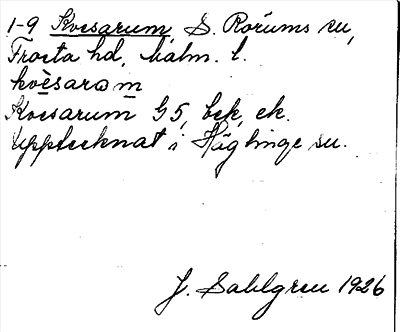 1-9 Kvesarum, S. Rörums sn,
Frosta hd, Malm. l.
kvèsaram
Kvesarum G5, bek, ek.
Upptecknat i Häglinge sn.
J. Sahlgren 1926